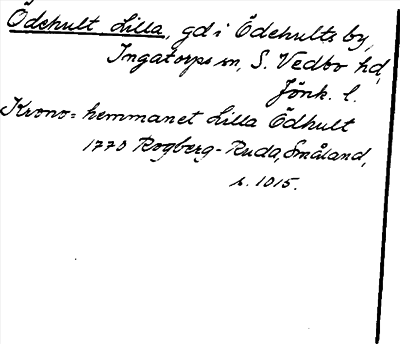 Ödehult, Lilla, gd i Ödehults by,
Ingatorps sn, S. Vedbo hd,
Jönk. l.
Krono-hemmanet Lilla Ödhult
1770 Rogberg-Ruda, Småland,
s. 1015.